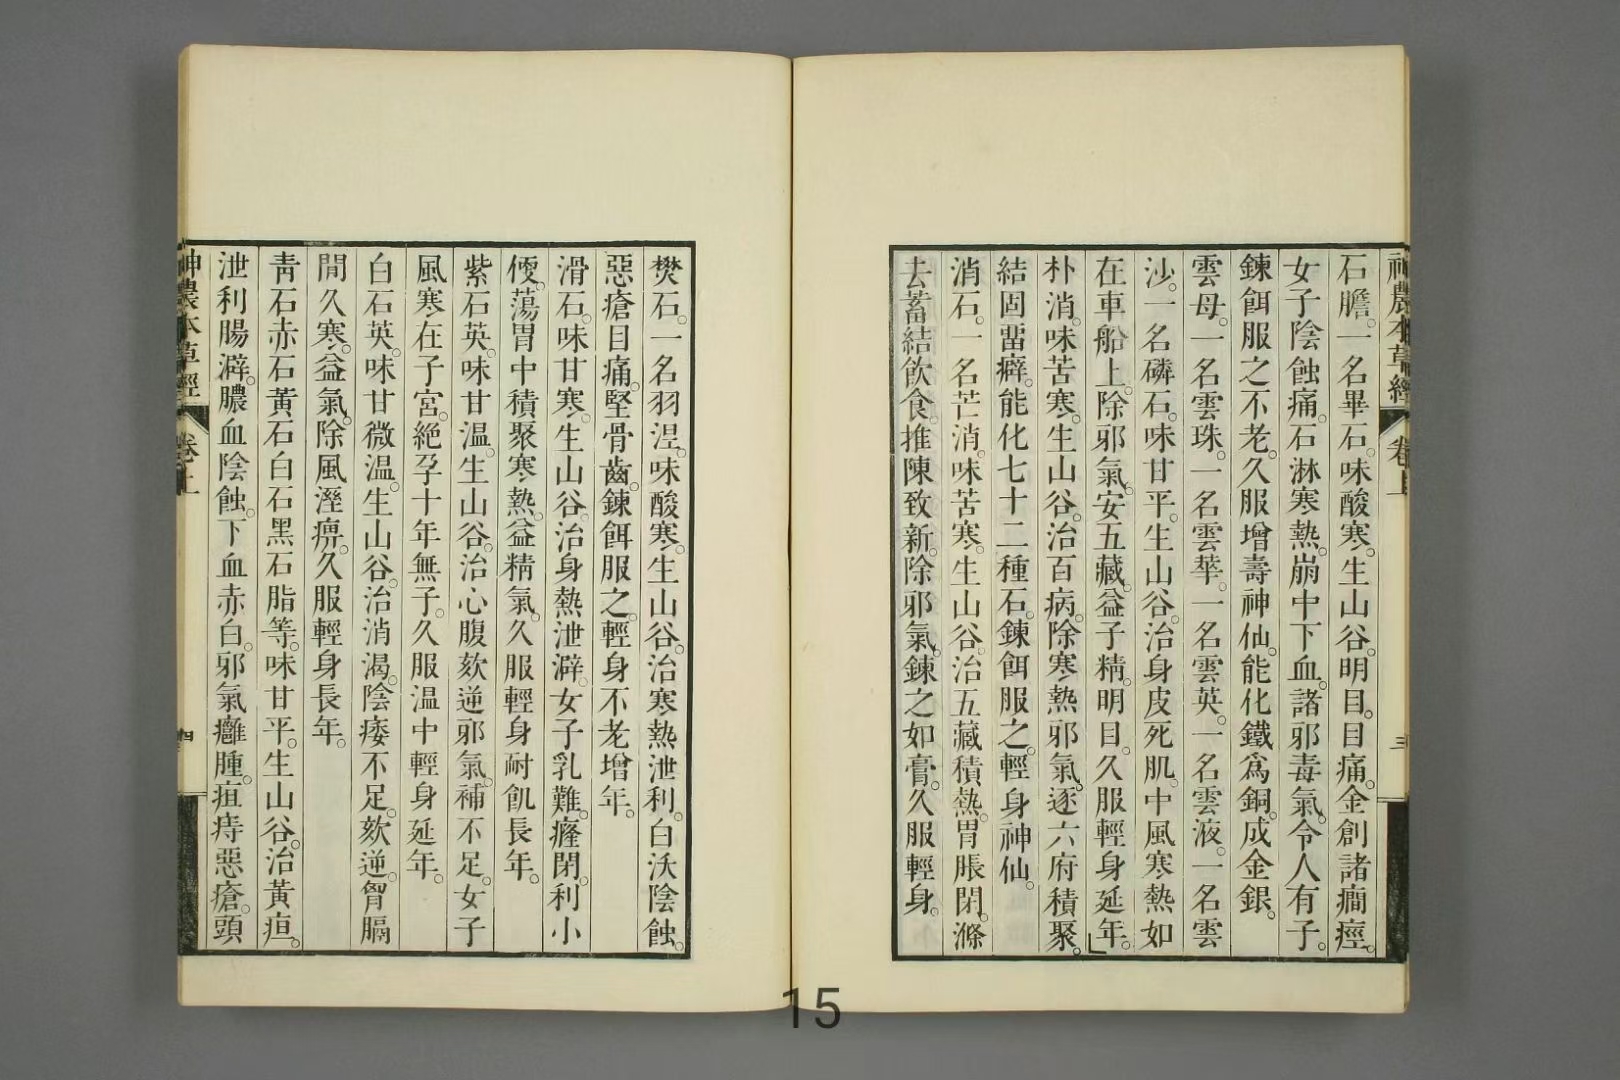 神農本草經 卷上 三
石膽。一名畢石。味酸寒。生山谷。明目。目痛。金創諸癇痙。
女子陰蝕痛。石淋寒熱。崩中下血。諸邪毒氣。令人有子。
鍊餌服之不老。久服增壽神仙。能化鐵爲銅。成金銀。
雲母。一名雲珠。一名雲華。一名雲英。一名雲液。一名雲
沙。一名磷石。味甘平。生山谷。治身皮死肌。中風寒熱如
在車船上。除邪氣。安五藏。益子精。明目。久服輕身延年。
朴消。味苦寒。生山谷。治百病。除寒熱邪氣。逐六府積聚。
結固畱癖。能化七十二種石。鍊餌服之。輕身神仙。
消石。一名芒消。味苦寒。生山谷。治五藏積熱。胃脹閉。滌
去蓄結飲食。推陳致新。除邪氣。鍊之如膏。久服輕身。
樊石。一名羽涅。味酸寒。生山谷。治寒熱泄利。白沃陰蝕。
惡瘡目痛。堅骨齒。鍊餌服之。輕身不老增年。
滑石。味甘寒。生山谷。治身熱泄澼。女子乳難。癃閉利小
便。蕩胃中積聚寒熱。益精氣。久服輕身耐飢長年。
紫石英。味甘溫。生山谷。治心腹欬逆邪氣。補不足。女子
風寒在子宮。絕孕十年無子。久服溫中輕身延年。
白石英。味甘微溫。生山谷。治消渴。陰痿不足。欬逆。胷膈
間久寒。益氣。除風溼痹。久服輕身長年。
靑石赤石黃石白石黑石脂等。味甘平。生山谷。治黃疸。
泄利腸澼。膿血陰蝕。下血赤白。邪氣癰腫。疽痔惡瘡。頭
神農本草經 卷上 四
15